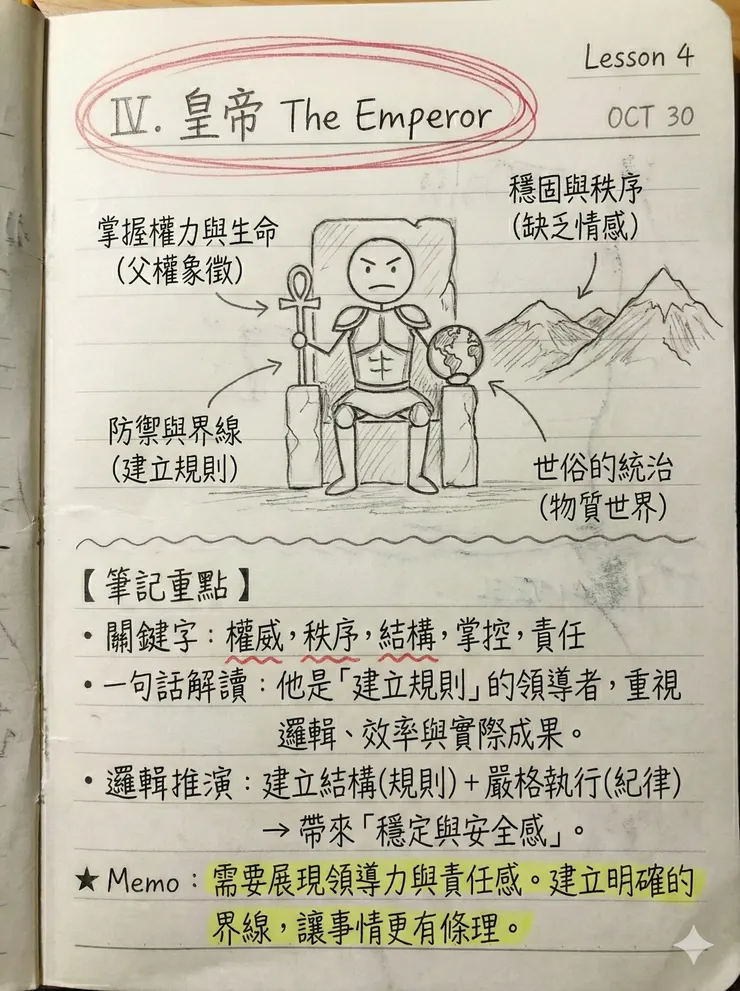 Lesson 4
IV. 皇帝 The Emperor
OCT 30
穩固與秩序
(缺乏情感)
掌握權力與生命
(父權象徵)
防禦與界線
(建立規則)
世俗的統治
(物質世界)
【筆記重點】
• 關鍵字：權威，秩序，結構，掌控，責任
• 一句話解讀：他是「建立規則」的領導者，重視
邏輯、效率與實際成果。
• 邏輯推演：建立結構(規則)+嚴格執行(紀律)
→ 帶來「穩定與安全感」。
★ Memo：需要展現領導力與責任感。建立明確的
界線，讓事情更有條理。